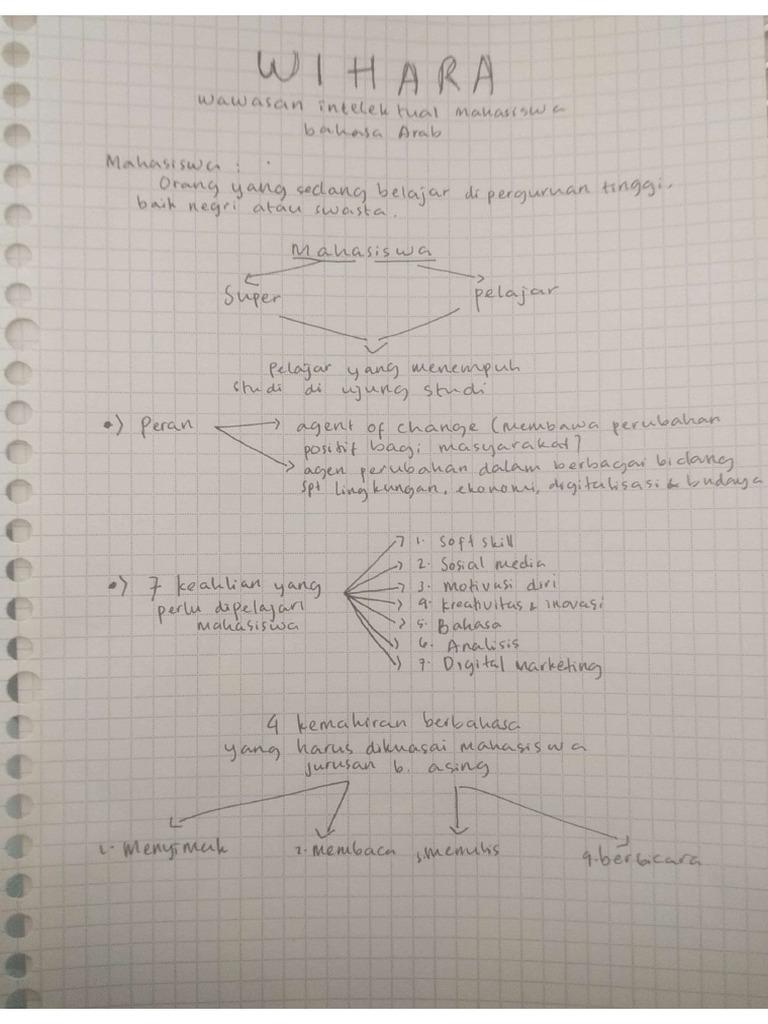 WIHARA
wawasan intelektual mahasiswa
bahasa Arab
Mahasiswa :
Orang yang sedang belajar di perguruan tinggi.
baik negri atau swasta.
Mahasiswa
Super
pelajar
Pelajar yang menempuh
studi di ujung studi
•) Peran
agent of change (membawa perubahan
positif bagi masyarakat)
agen perubahan dalam berbagai bidang
spt lingkungan, ekonomi, digitalisasi & budaya
•) 7 keahlian yang
perlu dipelajari
mahasiswa
1. Soft skill
2. Sosial media
3. Motivasi diri
4. kreativitas & inovasi
5. Bahasa
6. Analisis
7. Digital Marketing
4 kemahiran berbahasa
yang harus dikuasai mahasiswa
jurusan b. asing
1. Menyimak
2. Membaca
3. Menulis
4. berbicara